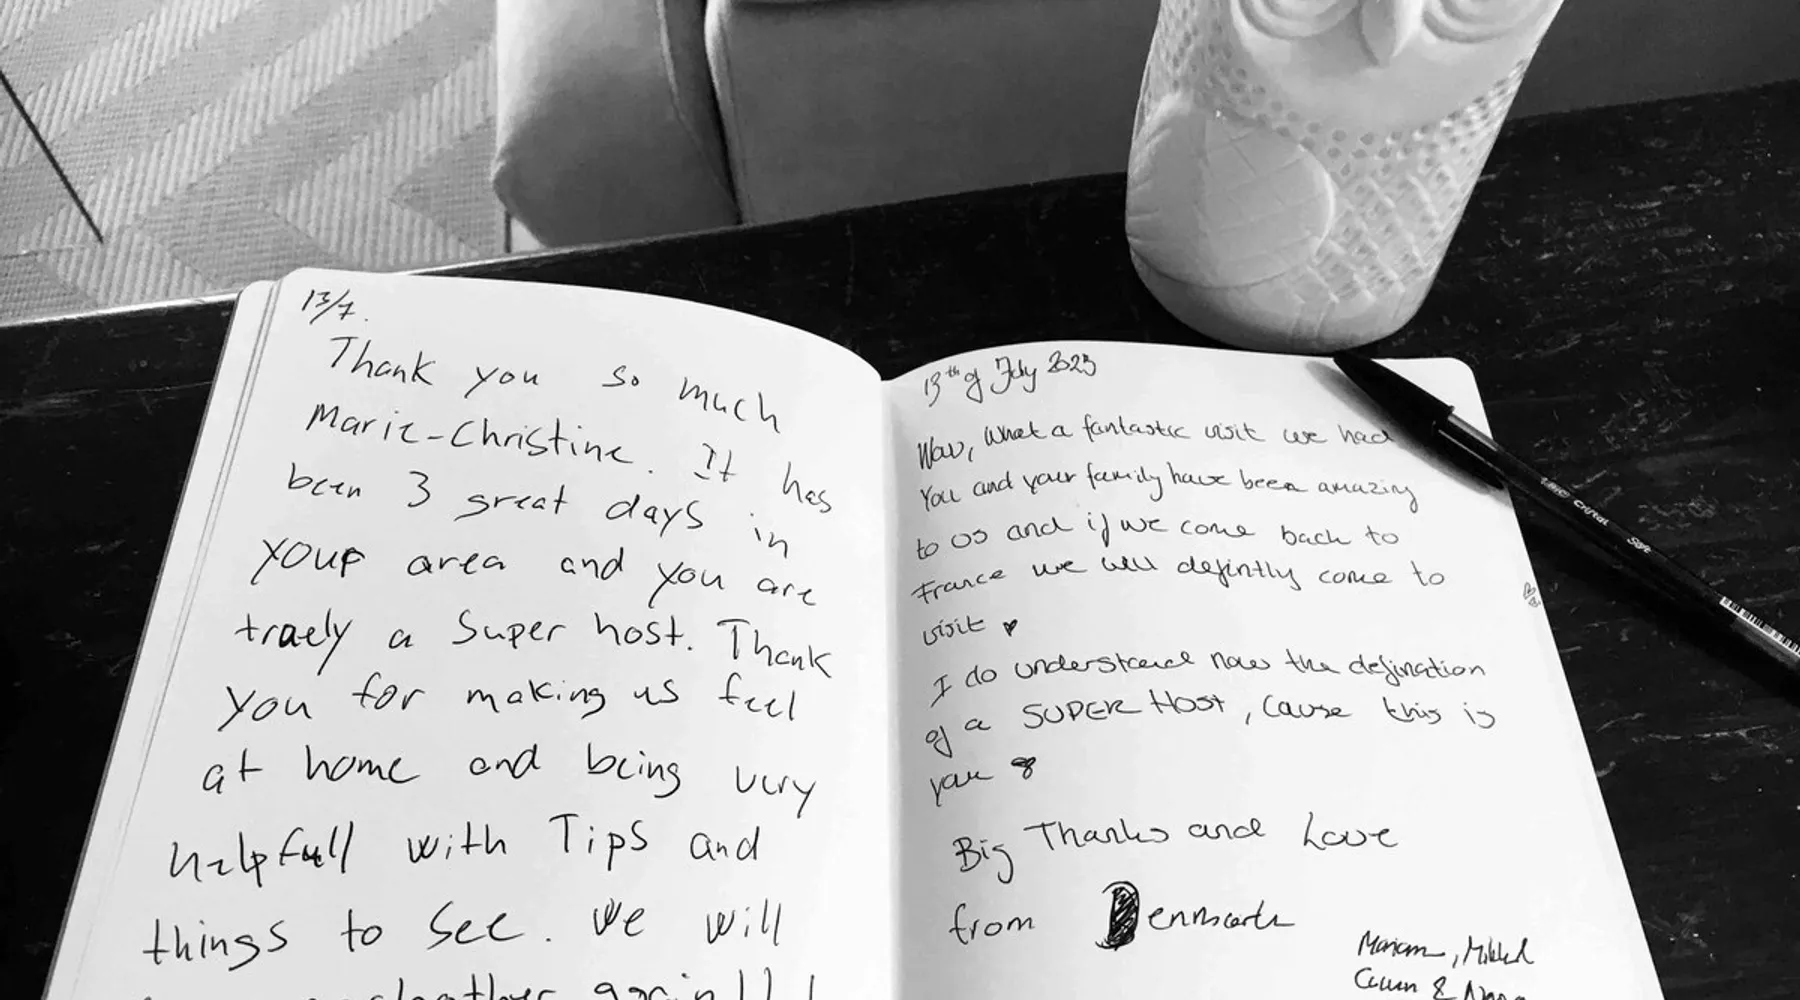 13/7.
Thank you so much
Marie-Christine. It has
been 3 great days in
your area and you are
truely a Super host. Thank
you for making us feel
at home and being very
helpfull with Tips and
things to see. We will
again!!!
13th of July 2023
Wow, What a fantastic visit we had
You and your family have been amazing
to us and if we come back to
France we will defintly come to
visit ♥
I do understand now the defination
of a SUPER HOST, cause this is
you
Big Thanks and Love
from Denmark
Mariam, Mikkel
&
BIC Cristal Soft